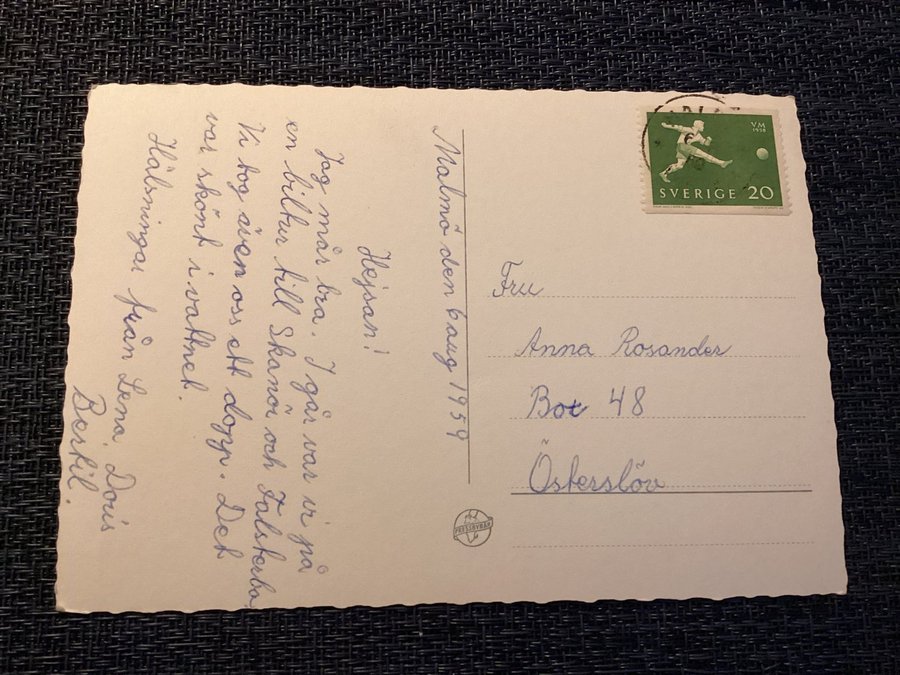 Malmö den 6 aug 1959
Hejsan!
Jag mår bra. I går var vi på
en biltur till Skanör och Falsterbo.
Vi tog även oss ett dopp. Det
var skönt i vattnet.
Hälsningar från Lena, Doris
Bertil.
VM
1958
SVERIGE 20
Fru
Anna Rosander
Box 48
Österslöv
PRESSBYRÅN